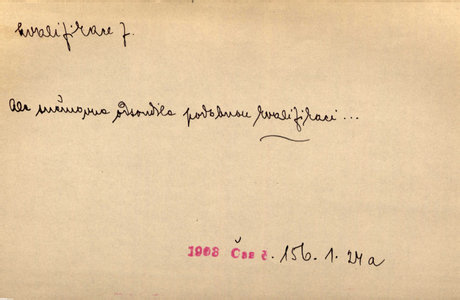 kvalifikace f.
Ale sněmovna odsoudila podobnou kvalifikaci...
1908 Čas č. 156. 1. 24 a